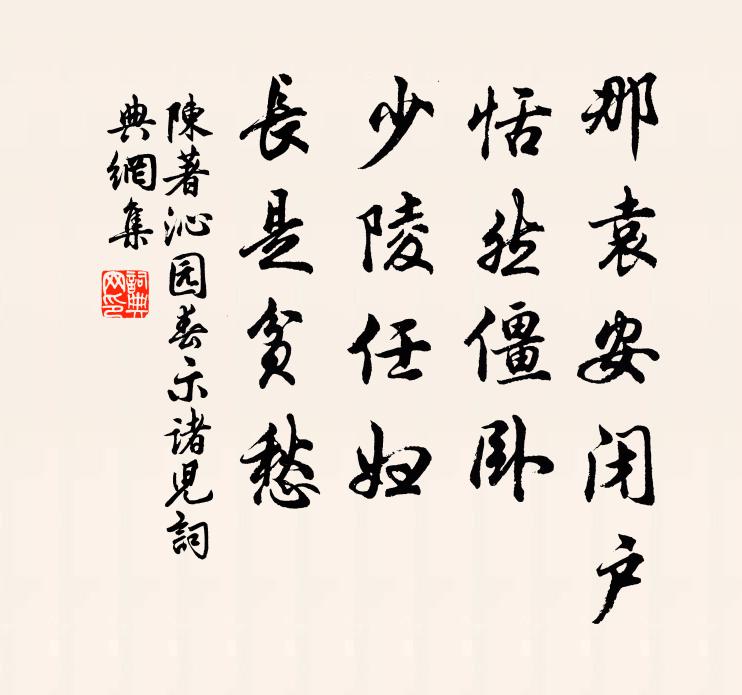 那袁安闭户
恬然僵卧
少陵任妇
長是贫愁
陳著沁园春示诸児詞
典網集
詞典網印